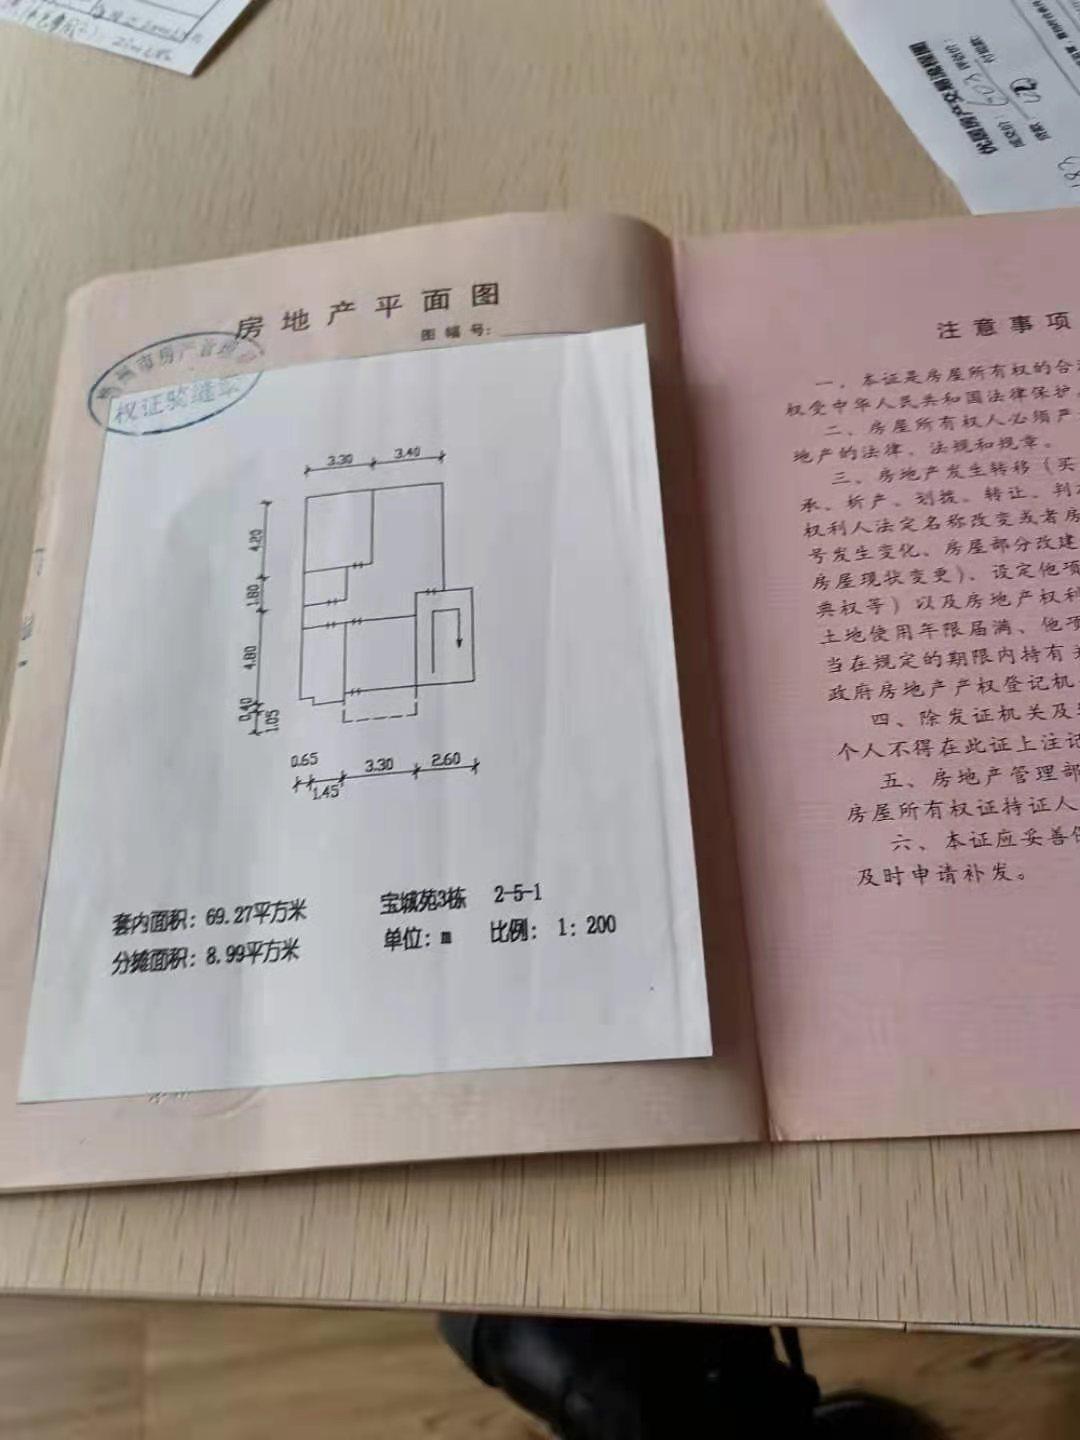 优居房产交易流程图
成交价：
评估价：
房地产平面图
图幅号：
权证骑缝章
3.30 3.40
4.20
1.80
4.80
0.40
1.05
0.65
1.45
3.30
2.60
套内面积：69.27平方米
分摊面积：8.99平方米
宝城苑3栋 2-5-1
单位：m 比例：1：200
注意事项
一、本证是房屋所有权的合
权受中华人民共和国法律保护
二、房屋所有权人必须严
地产的法律、法规和规章。
三、房地产发生转移（买
承、析产、划拨、转让、判
权利人法定名称改变或者房
号发生变化、房屋部分改建
房屋现状变更）、设定他项
典权等）以及房地产权利
土地使用年限届满、他项
当在规定的期限内持有关
政府房地产产权登记机
四、除发证机关及
个人不得在此证上注记
五、房地产管理部
房屋所有权证持证人
六、本证应妥善保
及时申请补发。